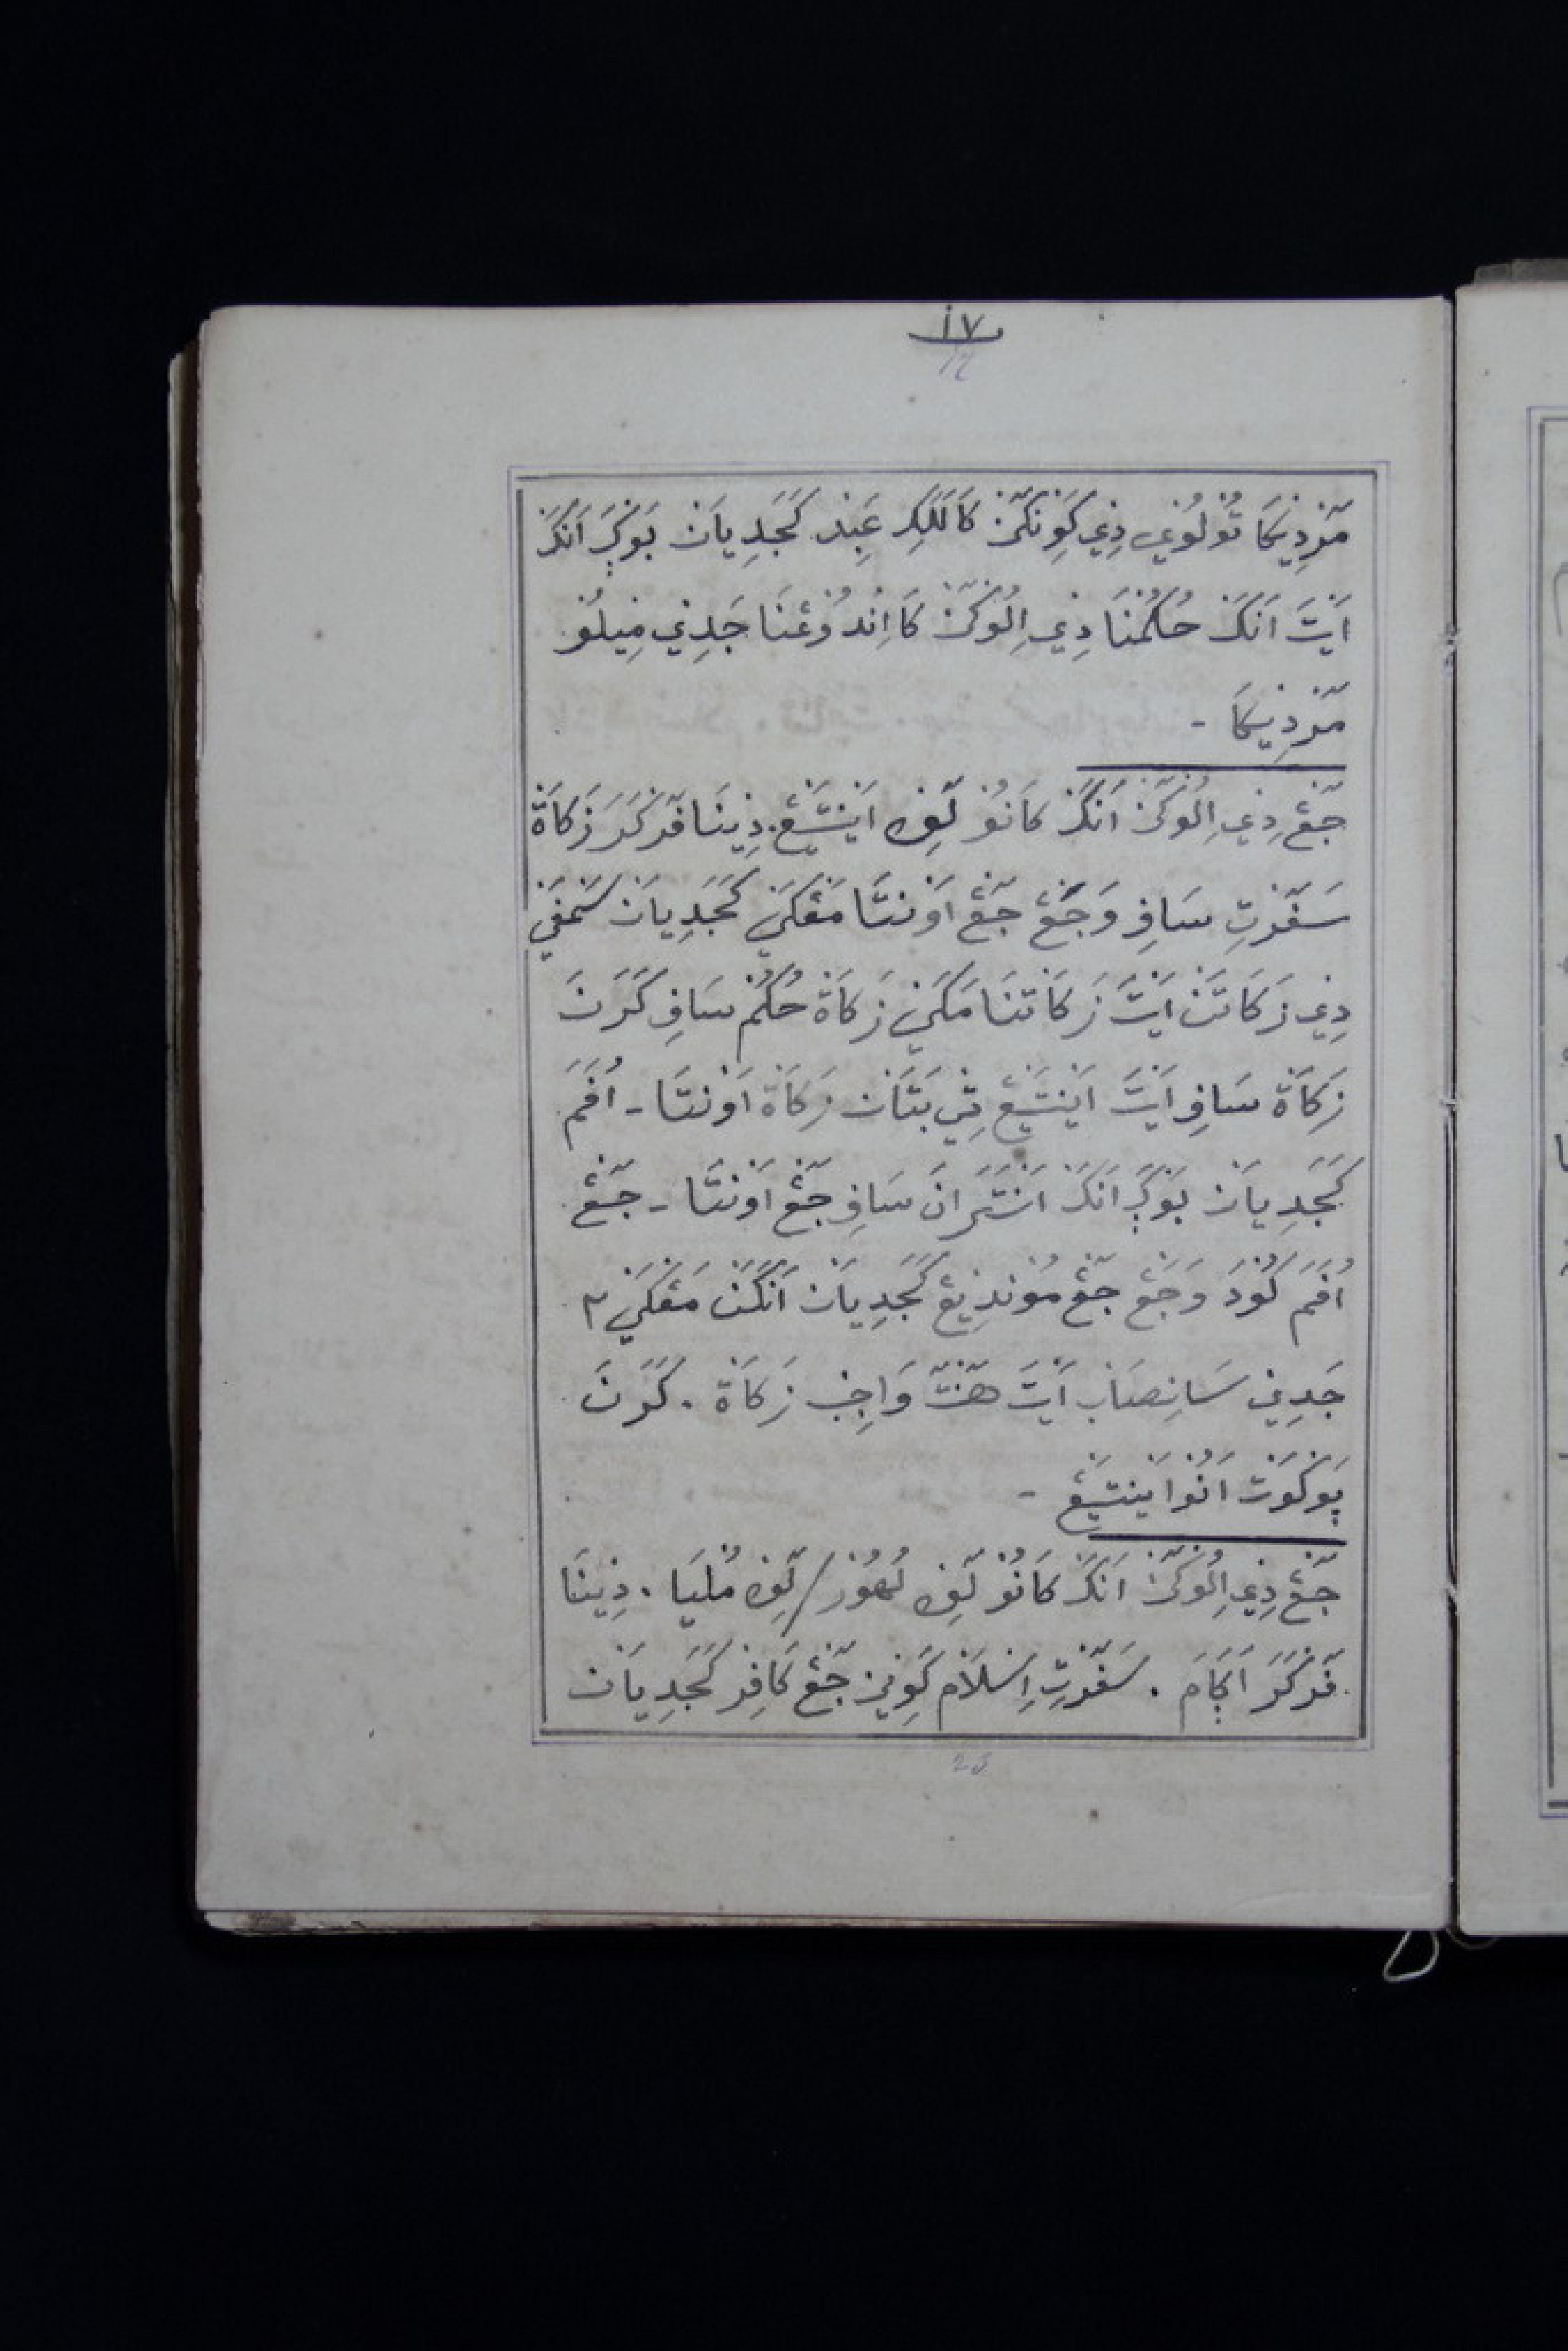 ١٧
12
مَرْدِيكَا تُوْلُوْيِ دِيِ كَوِنْكَنْ كَالَلَكِ عَبِدْ كَجَدِيَانْ بَوْكَرَ اَنْكَنْ
اَيْتَ اَنْكَنْ حُكُمْنَا دِيِ اِلُوْكَنْ كَا اِنْدُوْعْنَا جَدِيْ مِيْلُوْ
مَرْدِيكَا -
جَعْ دِيِ اِلُوْكَنْ اَنْكَنْ كَانُوْ لَفِهْ اَيِنْتَيْعْ. دِيْنَا فَرْكَرَ زَكَاةْ
سَفَرْتِ سَافِ وَجَعْ جَعْ اَوْنْتَا مَڠْكَنَيْ كَجَدِيَانْ سَمْفَيْ
دِيِ زَكَاتَنْ اَيْتَ زَكَاتْنَا مَكَنَيْ زَكَاةْ حُكُمْ سَافِ كَرَنَ
زَكَاةْ سَافِ اَيْتَ اَيِنْتَيْعْ تِيْ بَتَانْ زَكَاةْ اَوْنْتَا - اُفَمَ
كَجَدِيَانْ بَوْكَرَ اَنْكَنْ اَنْتَرَانَ سَافِ جَعْ اَوْنْتَا - جَعْ
اُفَمَ كُوْدَ وَجَعْ جَعْ مُوْنْدِيْعْ كَجَدِيَانْ اَنْكَنْ مَڠْكَنَيْ ٢
جَدِيْ سَانِصَابْ اَيْتَ هَنْتَ وَاجِبْ زَكَاةْ . كَرَنَ
بَوْكَوْتْ اَنُوْ اَيِنْتَيْعْ -
جَعْ دِيِ اِلُوْكَنْ اَنْكَنْ كَانُوْ لَفِهْ لُهُوْرْ / لَفِهْ مُلْيَا . دِيْنَا
فَرْكَرَ اَكَامَ . سَفَرْتِ اِسْلَامْ كَوِيْنْ جَعْ كَافِرْ كَجَدِيَانْ
23